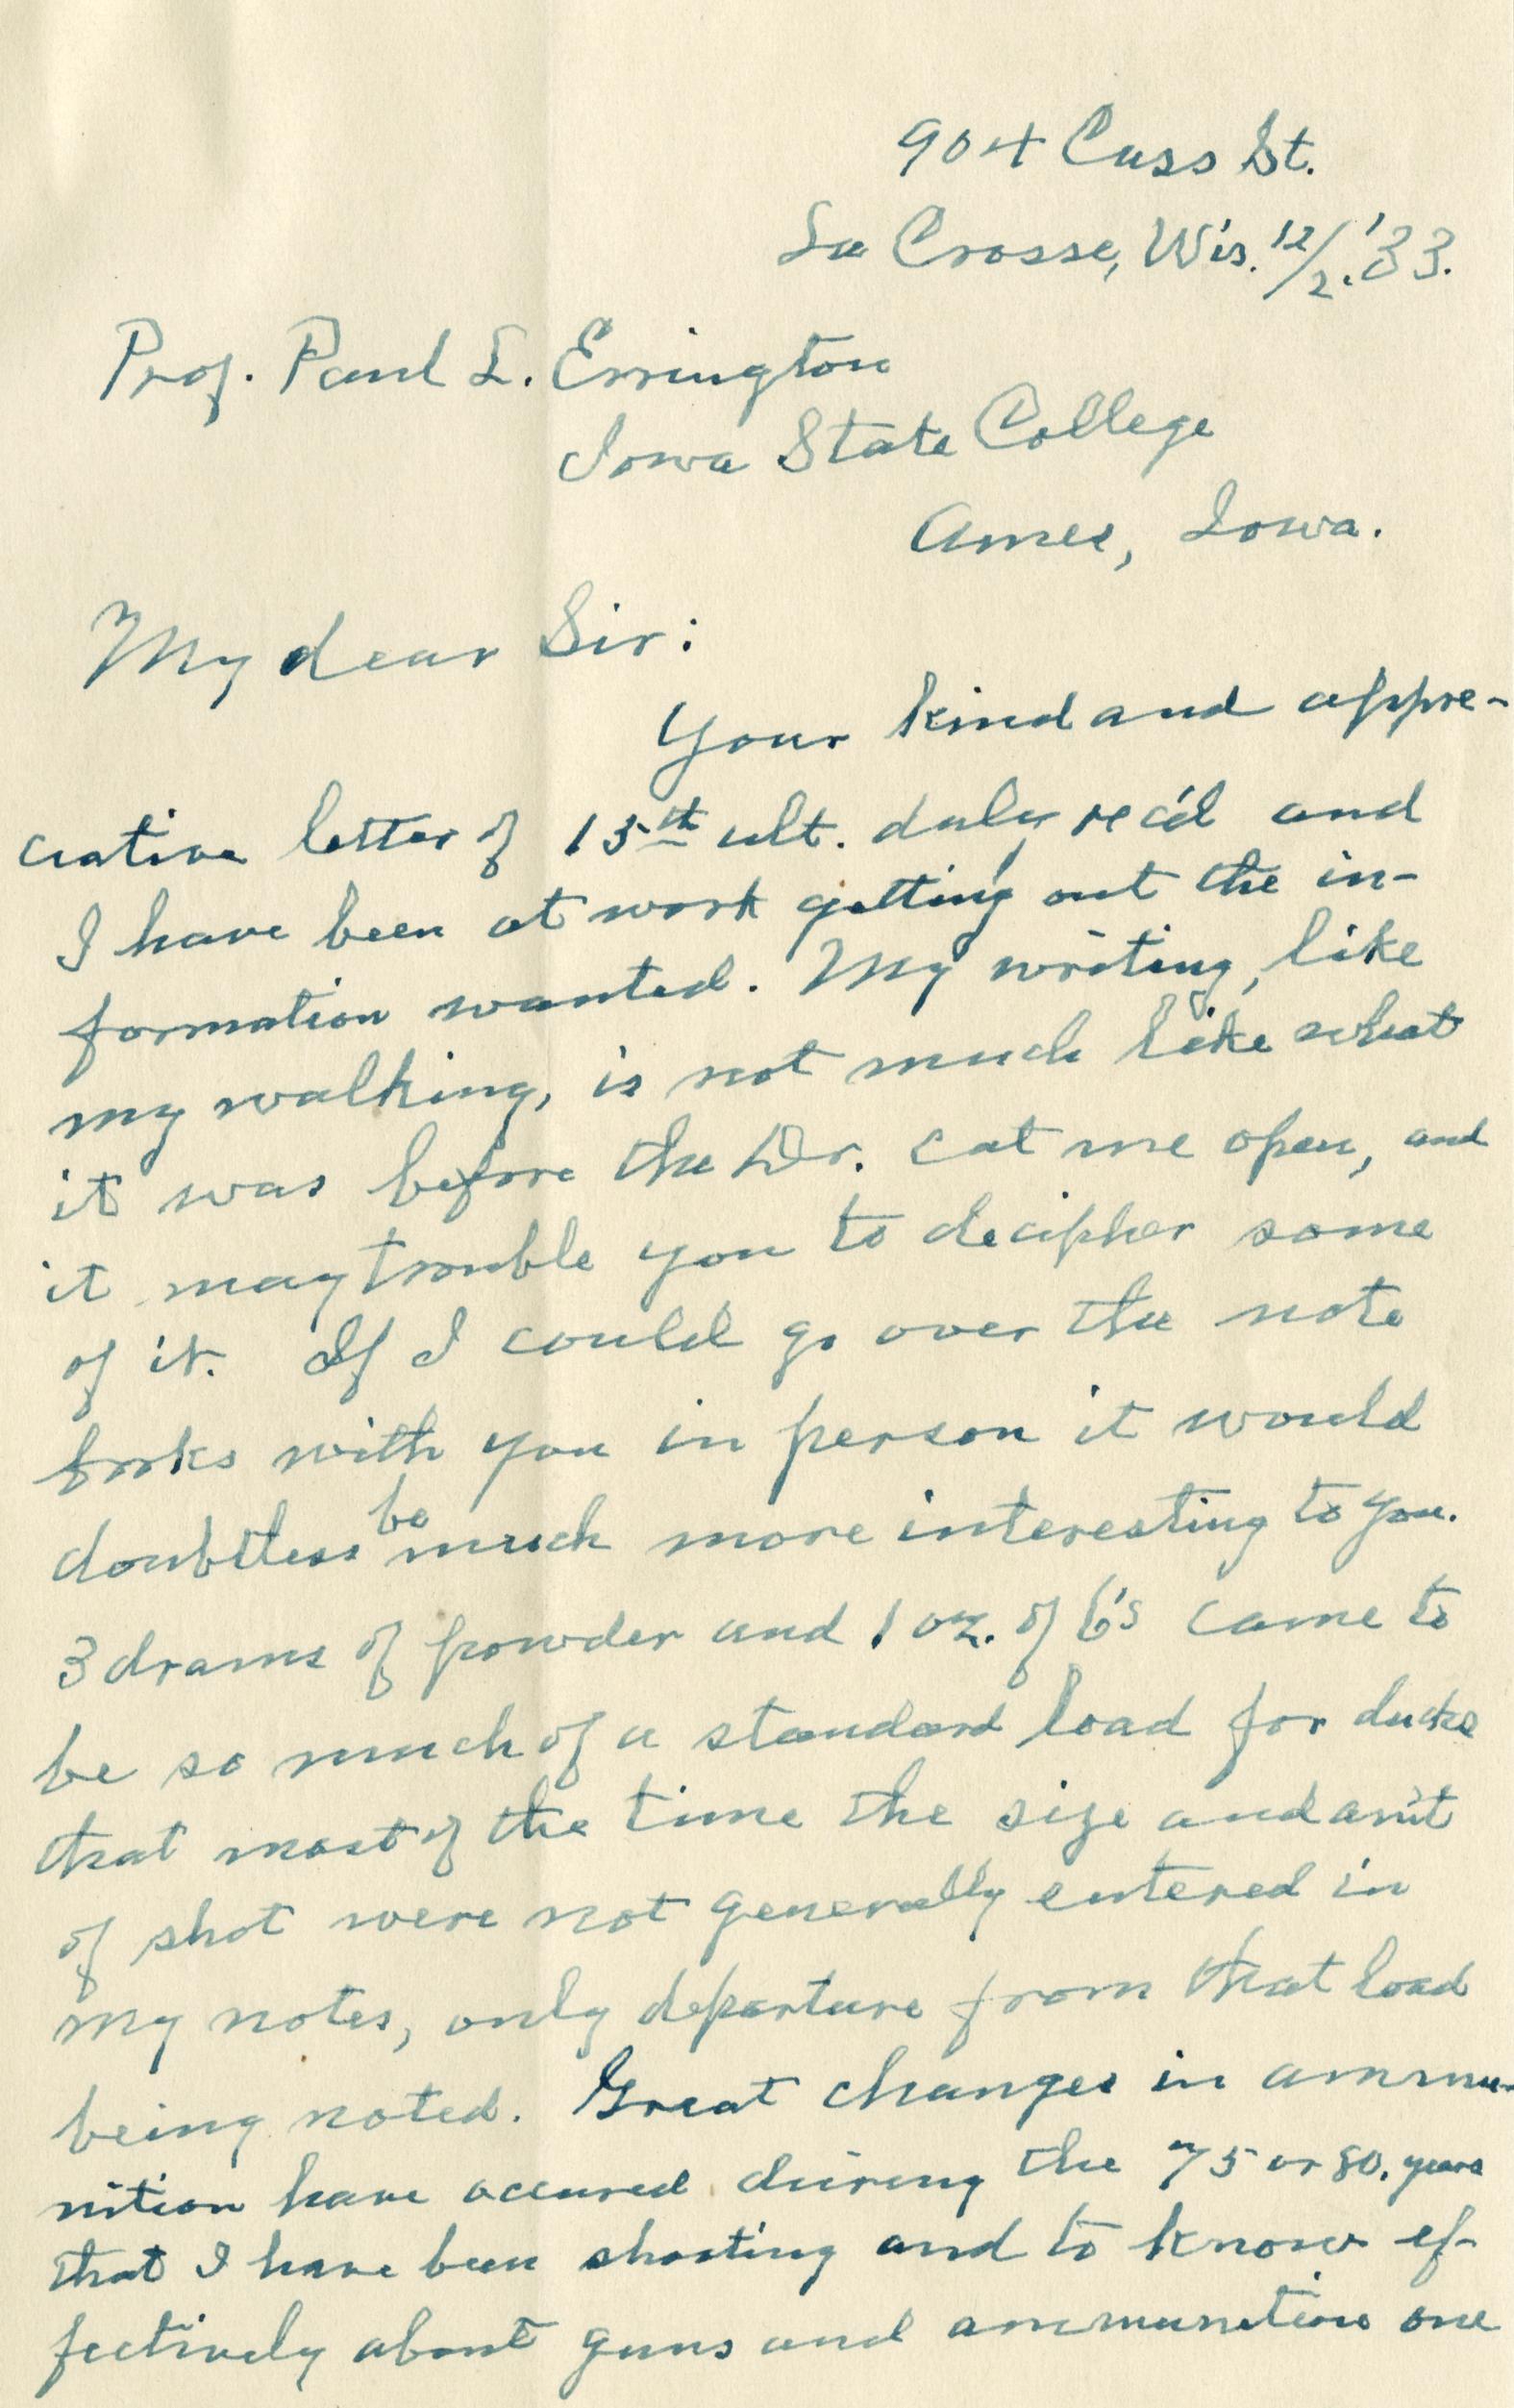 904 Cass St.
La Crosse, Wis. 12/2. '33.
Prof. Paul L. Errington
Iowa State College
Ames, Iowa.
My dear Sir:
Your kind and appre-
ciative letter of 15th ult. duly rec'd and
I have been at work getting out the in-
formation wanted. My writing, like
my walking, is not much like what
it was before the Dr. cut me open, and
it may trouble you to decipher some
of it. If I could go over the note
books with you in person it would
be
doubtless much more interesting to you.
3 drams of powder and 1 oz. of 6's came to
be so much of a standard load for ducks
that most of the time the size and am't
of shot were not generally entered in
my notes, only departure from that load
being noted. Great changes in ammu-
nition have occured during the 75 or 80. years
that I have been shooting and to know ef-
fectively about guns and ammunition one